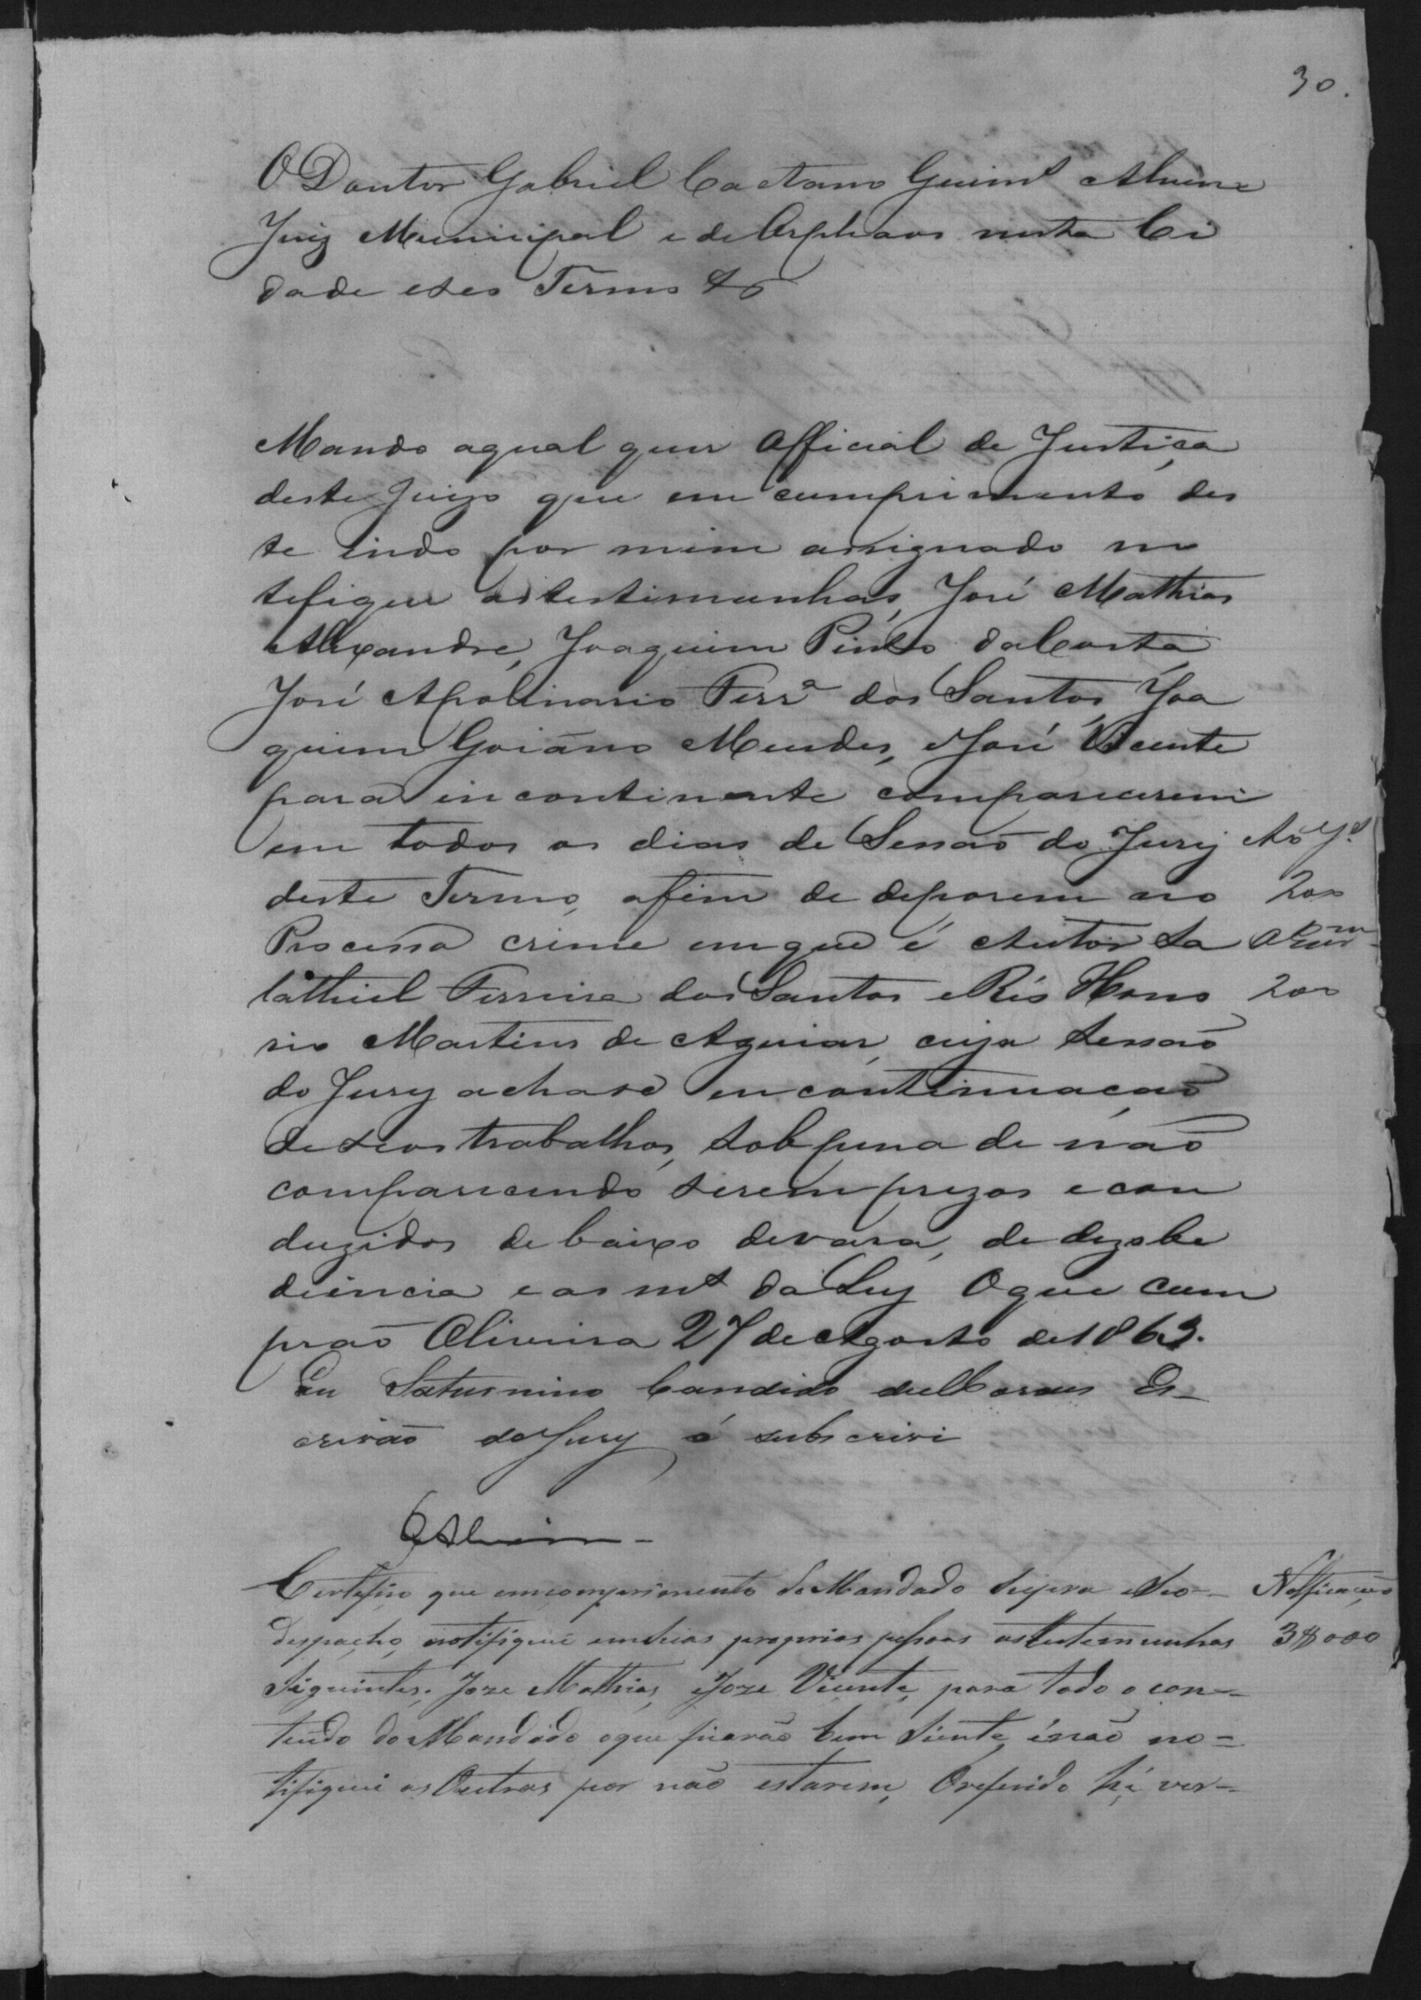 30.
O Doutor Gabriel Caetano Guimˢ Alvim
Juiz Municipal e de Orphaos nesta Ci
dade e seo Termo &
Mando aqual quer Official de Justiça
deste Juizo que em cumprimento des
te indo por mim assignado no
tefique as testimunhas, José Mathias
Alexandre, Joaquim Pinto da Costa
José Apolinario Ferrª dos Santos, Joa
quim Goiano Mendes, e José Vicente
para incontinente comparecerem
em todos os dias de Sessaõ do Jury
deste Termo, afim de deporem no
Processo crime emque é Autor Sa
lathiel Ferreira dos Santos e Réo Hono
rio Martins de Aguiar, cuja Sessaõ
do Jury achase em continuaçaõ
de seos trabalhos, sob pena de naõ
comparecendo serem prezos e con
duzidos de baixo de vara, de dezobe
diencia e as mˢ da Ley O que cum
praõ Oliveira 27 de Agosto de 1863.
Eu Saturnino Candido de Moraes Es-
crivaõ do Jury o subscrivi
Ao J.
200
200
Alvim
Certifico que em comprimento do Mandado supra e seo-
despacho, notifiquei em suas proprias pessoas as testemunhas
siguintes; Joze Mathias, e Joze Vicente, para todo o con-
teudo do Mandado o que ficaraõ bem siente, e naõ no-
tifiquei as Outras por naõ estarem, O referido hé ver-
Notificacaõ
3$000